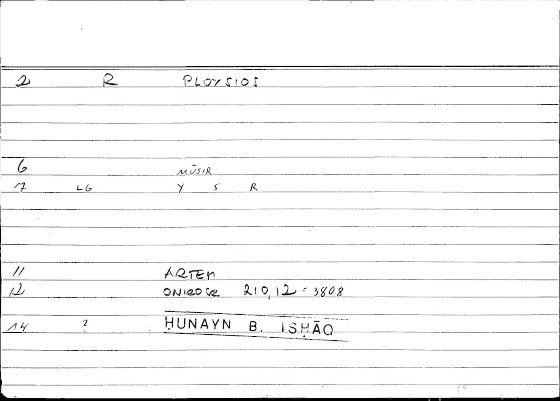 2 R PLOYSIOS
6 MŪSIR
7 LG Y S R
11 ARTEM
12 ONIROCR 210,12 = 3808
14 ? ḤUNAYN B. ISḤĀQ